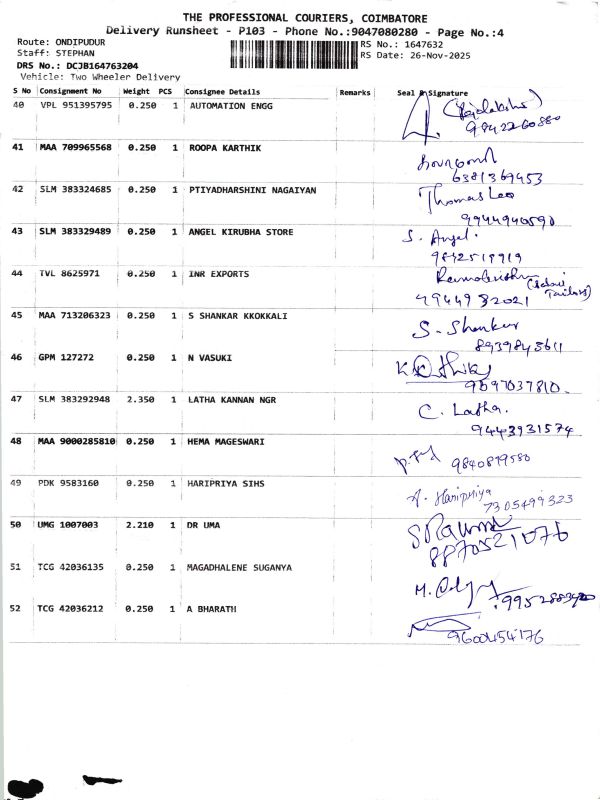 THE PROFESSIONAL COURIERS, COIMBATORE
Delivery Runsheet - P103 - Phone No.:9047080280 - Page No.:4
Route: ONDIPUDUR
Staff: STEPHAN
DRS No.: DCJB164763204
Vehicle: Two Wheeler Delivery
RS No.: 1647632
RS Date: 26-Nov-2025
S No Consignment No Weight PCS Consignee Details Remarks Seal & Signature
40 VPL 951395795 0.250 1 AUTOMATION ENGG
9842260880
41 MAA 709965568 0.250 1 ROOPA KARTHIK
6381369453
42 SLM 383324685 0.250 1 PTIYADHARSHINI NAGAIYAN Thomas Leo
9944940590
43 SLM 383329489 0.250 1 ANGEL KIRUBHA STORE S. Angel.
9842518919
44 TVL 8625971 0.250 1 INR EXPORTS
4944932021
45 MAA 713206323 0.250 1 S SHANKAR KKOKKALI S. Shankar
8939843611
46 GPM 127272 0.250 1 N VASUKI
9597037810
47 SLM 383292948 2.350 1 LATHA KANNAN NGR C. Latha.
9443931574
48 MAA 9000285810 0.250 1 HEMA MAGESWARI
9840819580
49 PDK 9583160 0.250 1 HARIPRIYA SIHS A. Haripriya
7305499323
50 UMG 1007003 2.210 1 DR UMA
8870521076
51 TCG 42036135 0.250 1 MAGADHALENE SUGANYA
52 TCG 42036212 0.250 1 A BHARATH
9600454176